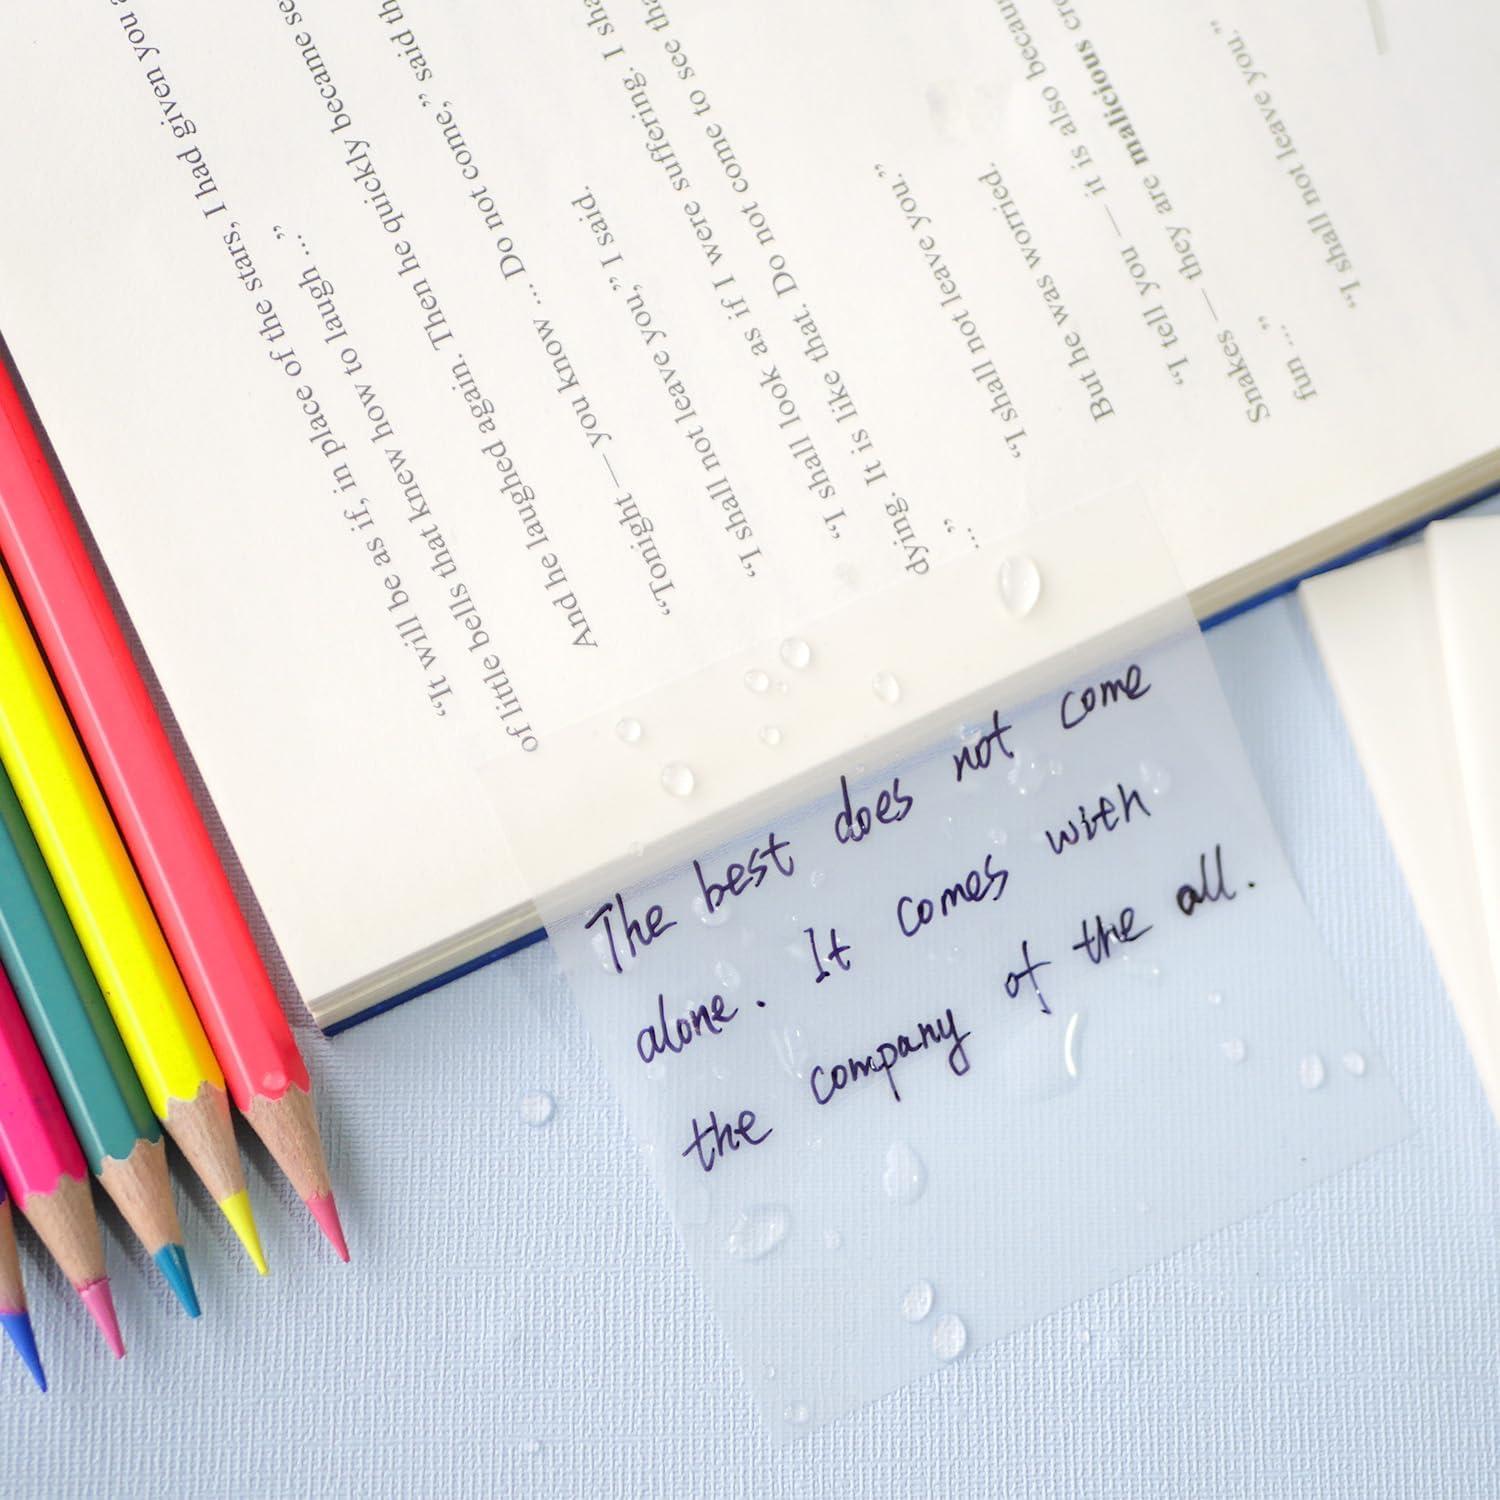 "It will be as if, in place of the stars, I had given you a
of little bells that knew how to laugh ..."
And he laughed again. Then he quickly became se
"Tonight — you know ... Do not come," said th
"I shall not leave you," I said.
"I shall look as if I were suffering. I sha
dying. It is like that. Do not come to see tha
..."
"I shall not leave you."
But he was worried.
"I tell you — it is also becau
Snakes — they are malicious cre
fun ..."
"I shall not leave you."
The best does not come
alone. It comes with
the company of the all.